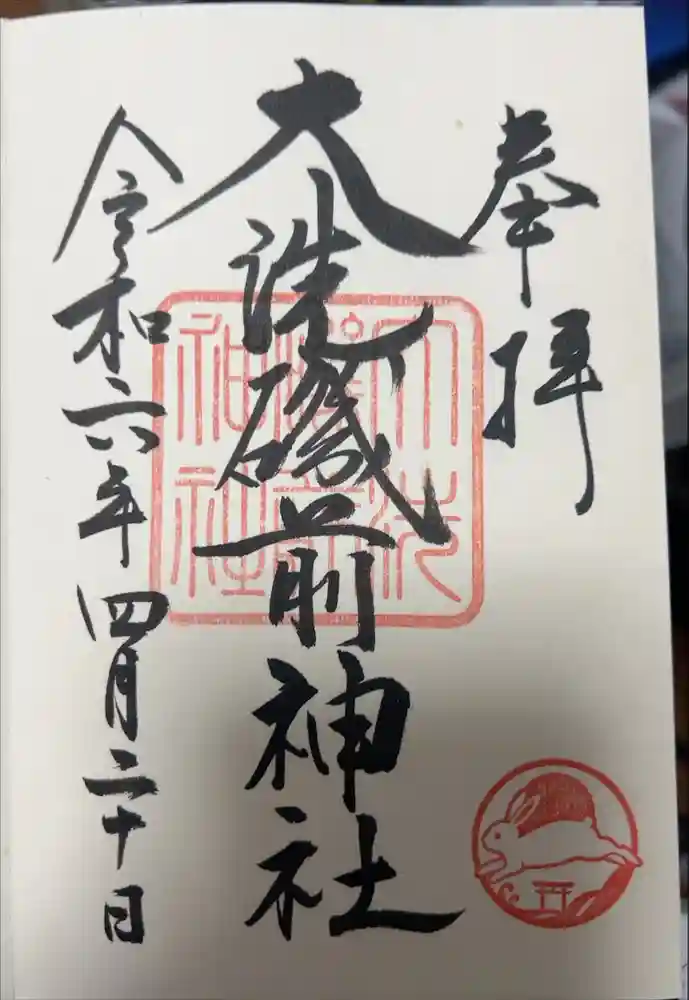 奉拝
大洗磯前神社
令和六年四月二十日
大洗
磯前
神社